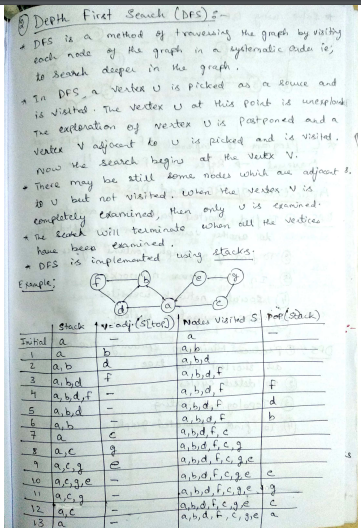 Depth First Search (DFS):-
* DFS is a method of traversing the graph by visiting
each node of the graph in a systematic order ie,
to search deeper in the graph.
* In DFS, a vertex U is picked as a source and
is visited. The vertex U at this point is unexplored
The exploration of vertex U is postponed and a
vertex V adjacent to U is picked and is visited.
Now the search begins at the vertex V.
* There may be still some nodes which are adjacent
to U but not visited. When the vertex V is
completely examined, then only U is examined.
* The search will terminate when all the vertices
have been examined.
* DFS is implemented using stacks.
Example:
f b e g
d a c
Stack v=adj.(S[top]) Nodes visited S Pop(Stack)
Initial a – a –
1 a b a,b
2 a,b d a,b,d
3 a,b,d f a,b,d,f
4 a,b,d,f – a,b,d,f f
5 a,b,d – a,b,d,f d
6 a,b – a,b,d,f b
7 a c a,b,d,f,c
8 a,c g a,b,d,f,c,g
9 a,c,g e a,b,d,f,c,g,e
10 a,c,g,e – a,b,d,f,c,g,e e
11 a,c,g – a,b,d,f,c,g,e g
12 a,c – a,b,d,f,c,g,e c
13 a – a,b,d,f,c,g,e a